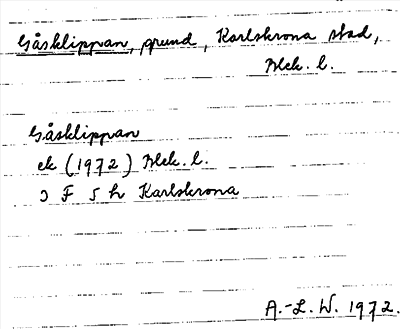 Gåsklippan, grund, Karlskrona stad,
Blek. l.
Gåsklippan
ek (1972) Blek. l.
3 F 5 h Karlskrona
A.-L. W. 1972.